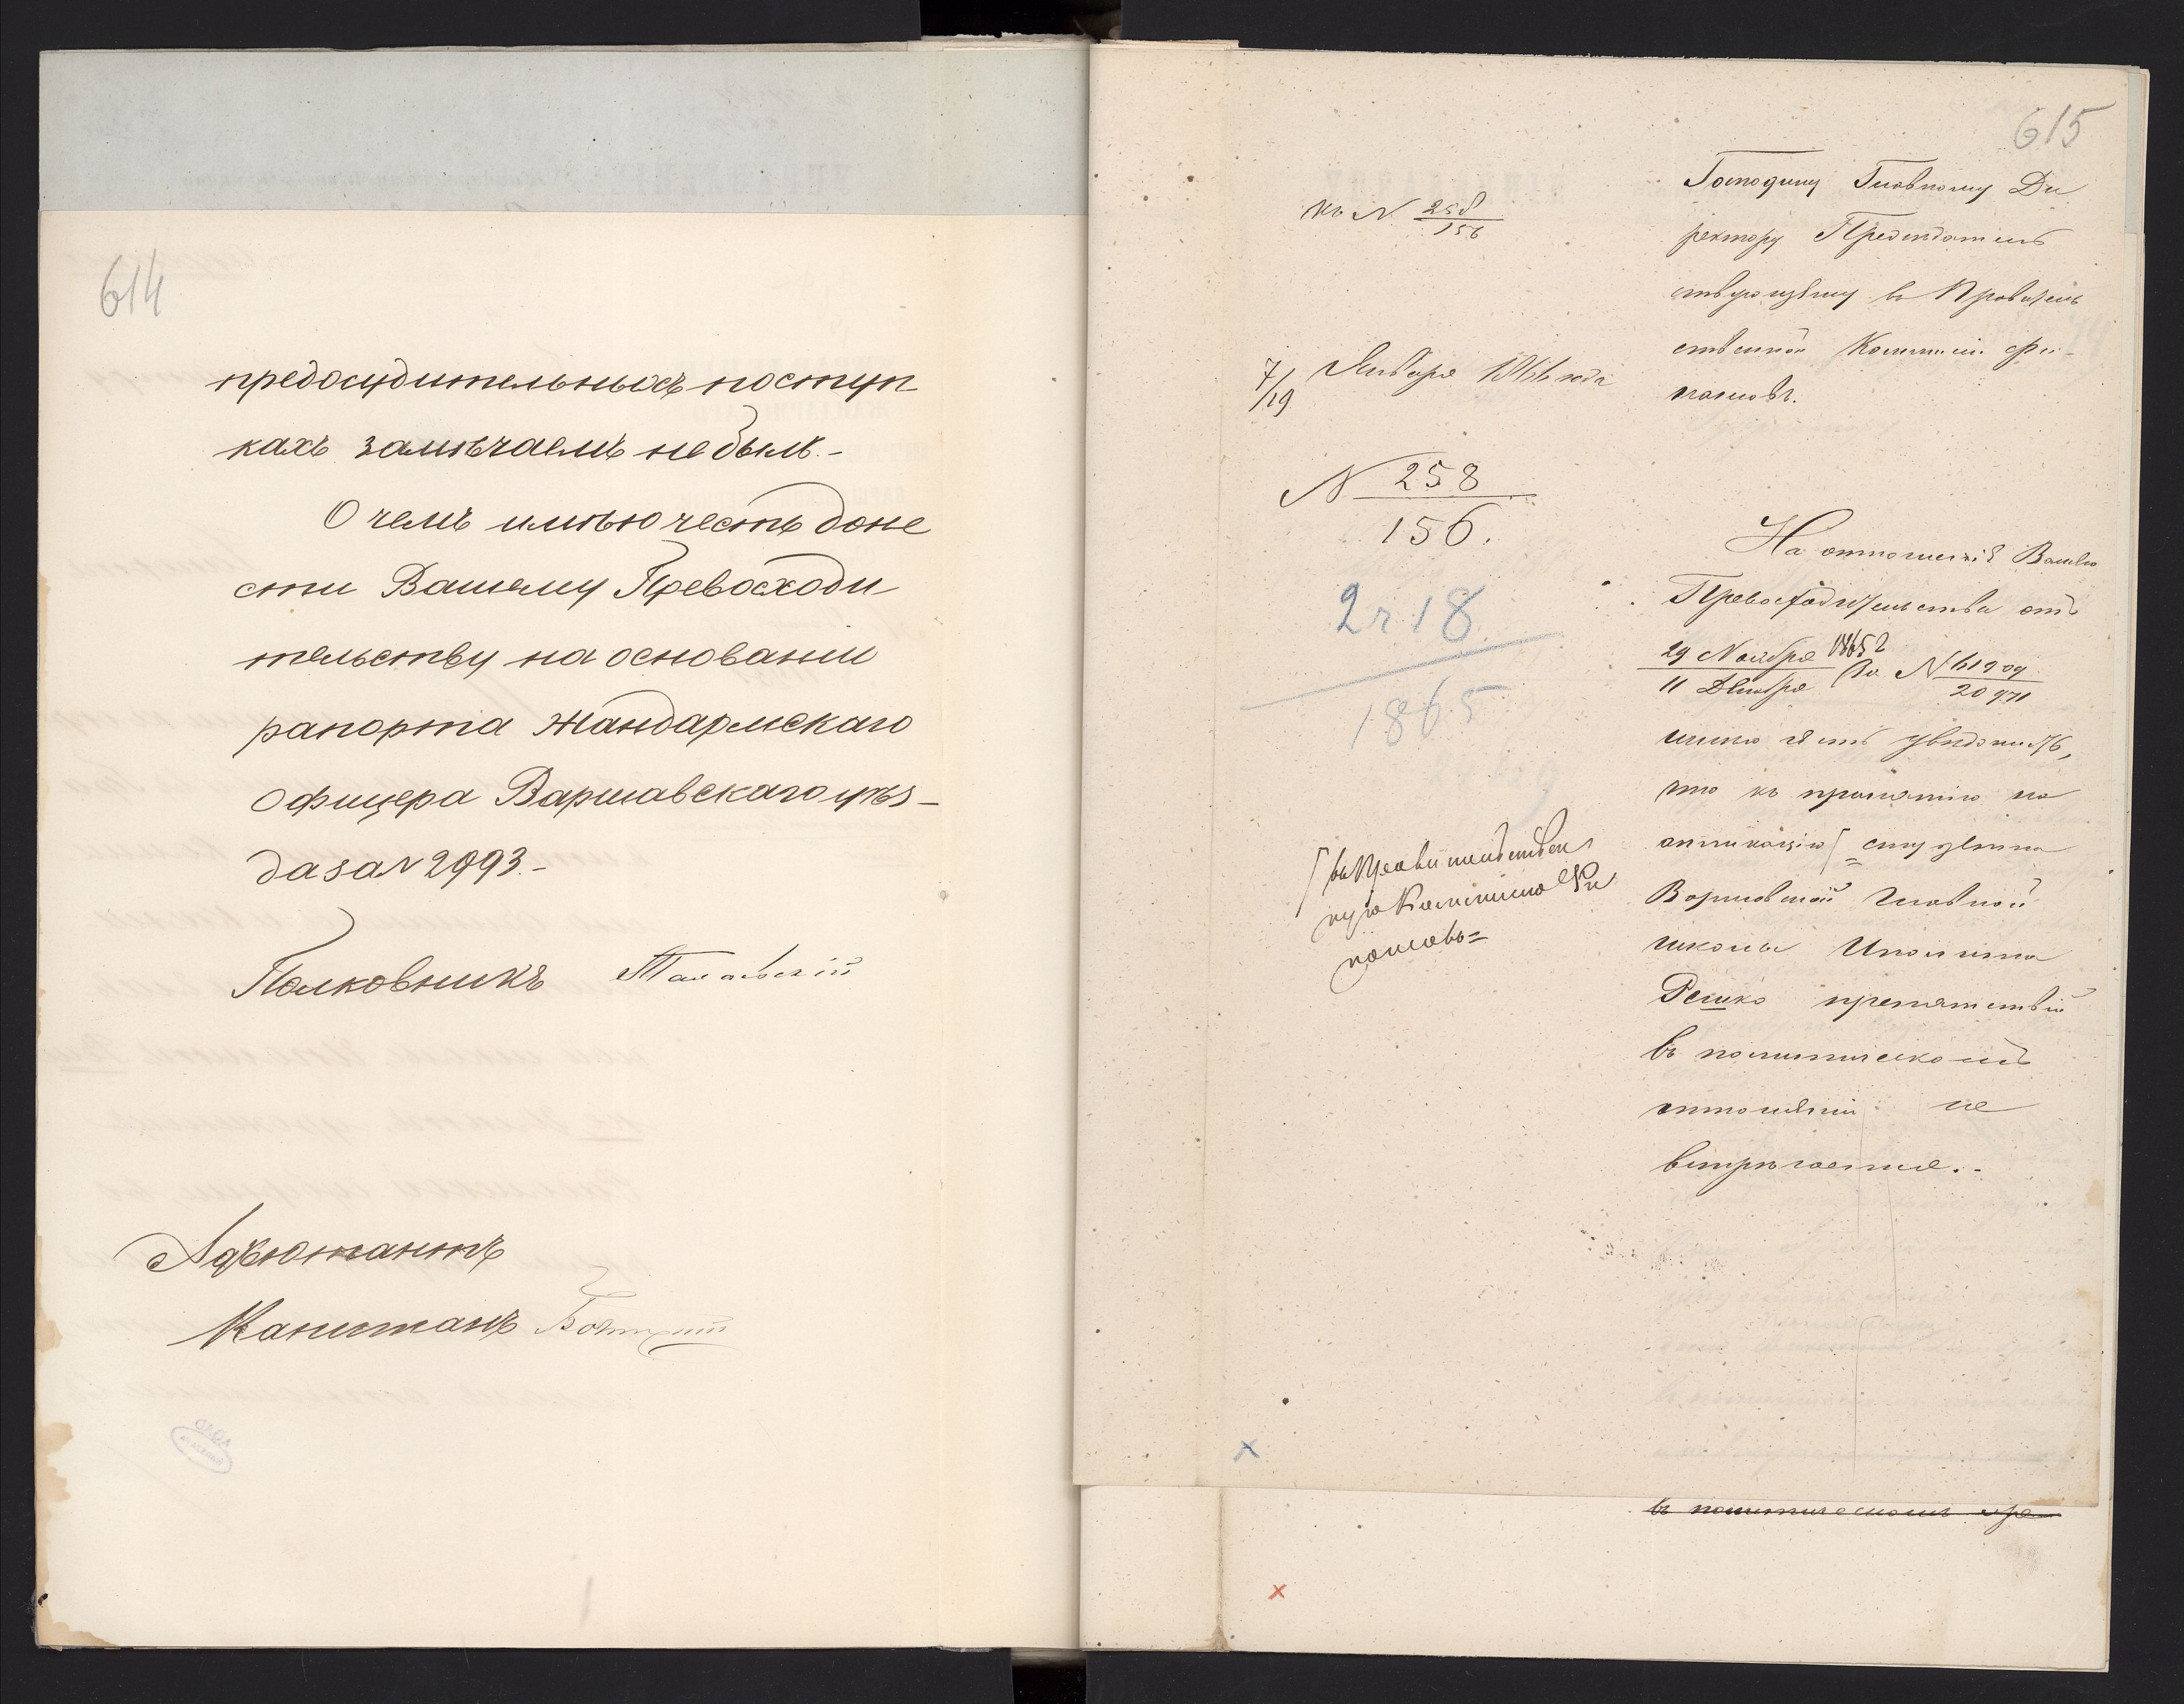 614
предосудительныхъ поступ
кахъ замѣчаемъ не былъ.-
О чемъ имѣю честь доне
сти Вашему Превосходи
тельству на основаніи
рапорта Жандармскаго
Офицера Варшавскаго уѣз-
да за N 2993.-
Полковникъ
Адъютантъ
Капитанъ
615
къ N 258/156
7/19 Января 1866 года
N 258/156.
2 r 18
1865
Господину Главному Ди
ректору Предсѣдатель
ствующему въ Правитель
ственной Коммисіи Фи-
нансовъ.
На отношеніе Вашего
Превосходительства отъ
29 Ноября/11 Декабря 1865 г за N 61909/20971
имѣю честь увѣдомить,
что къ принятію на
аппликацію / студента
/ въ Правительствен
ную Коммисію Фи
нансовъ=
Варшавской Главной
школы Иполита
Решко препятствій
въ политическомъ
отношеніи не
встрѣчается.-
въ политическомъ